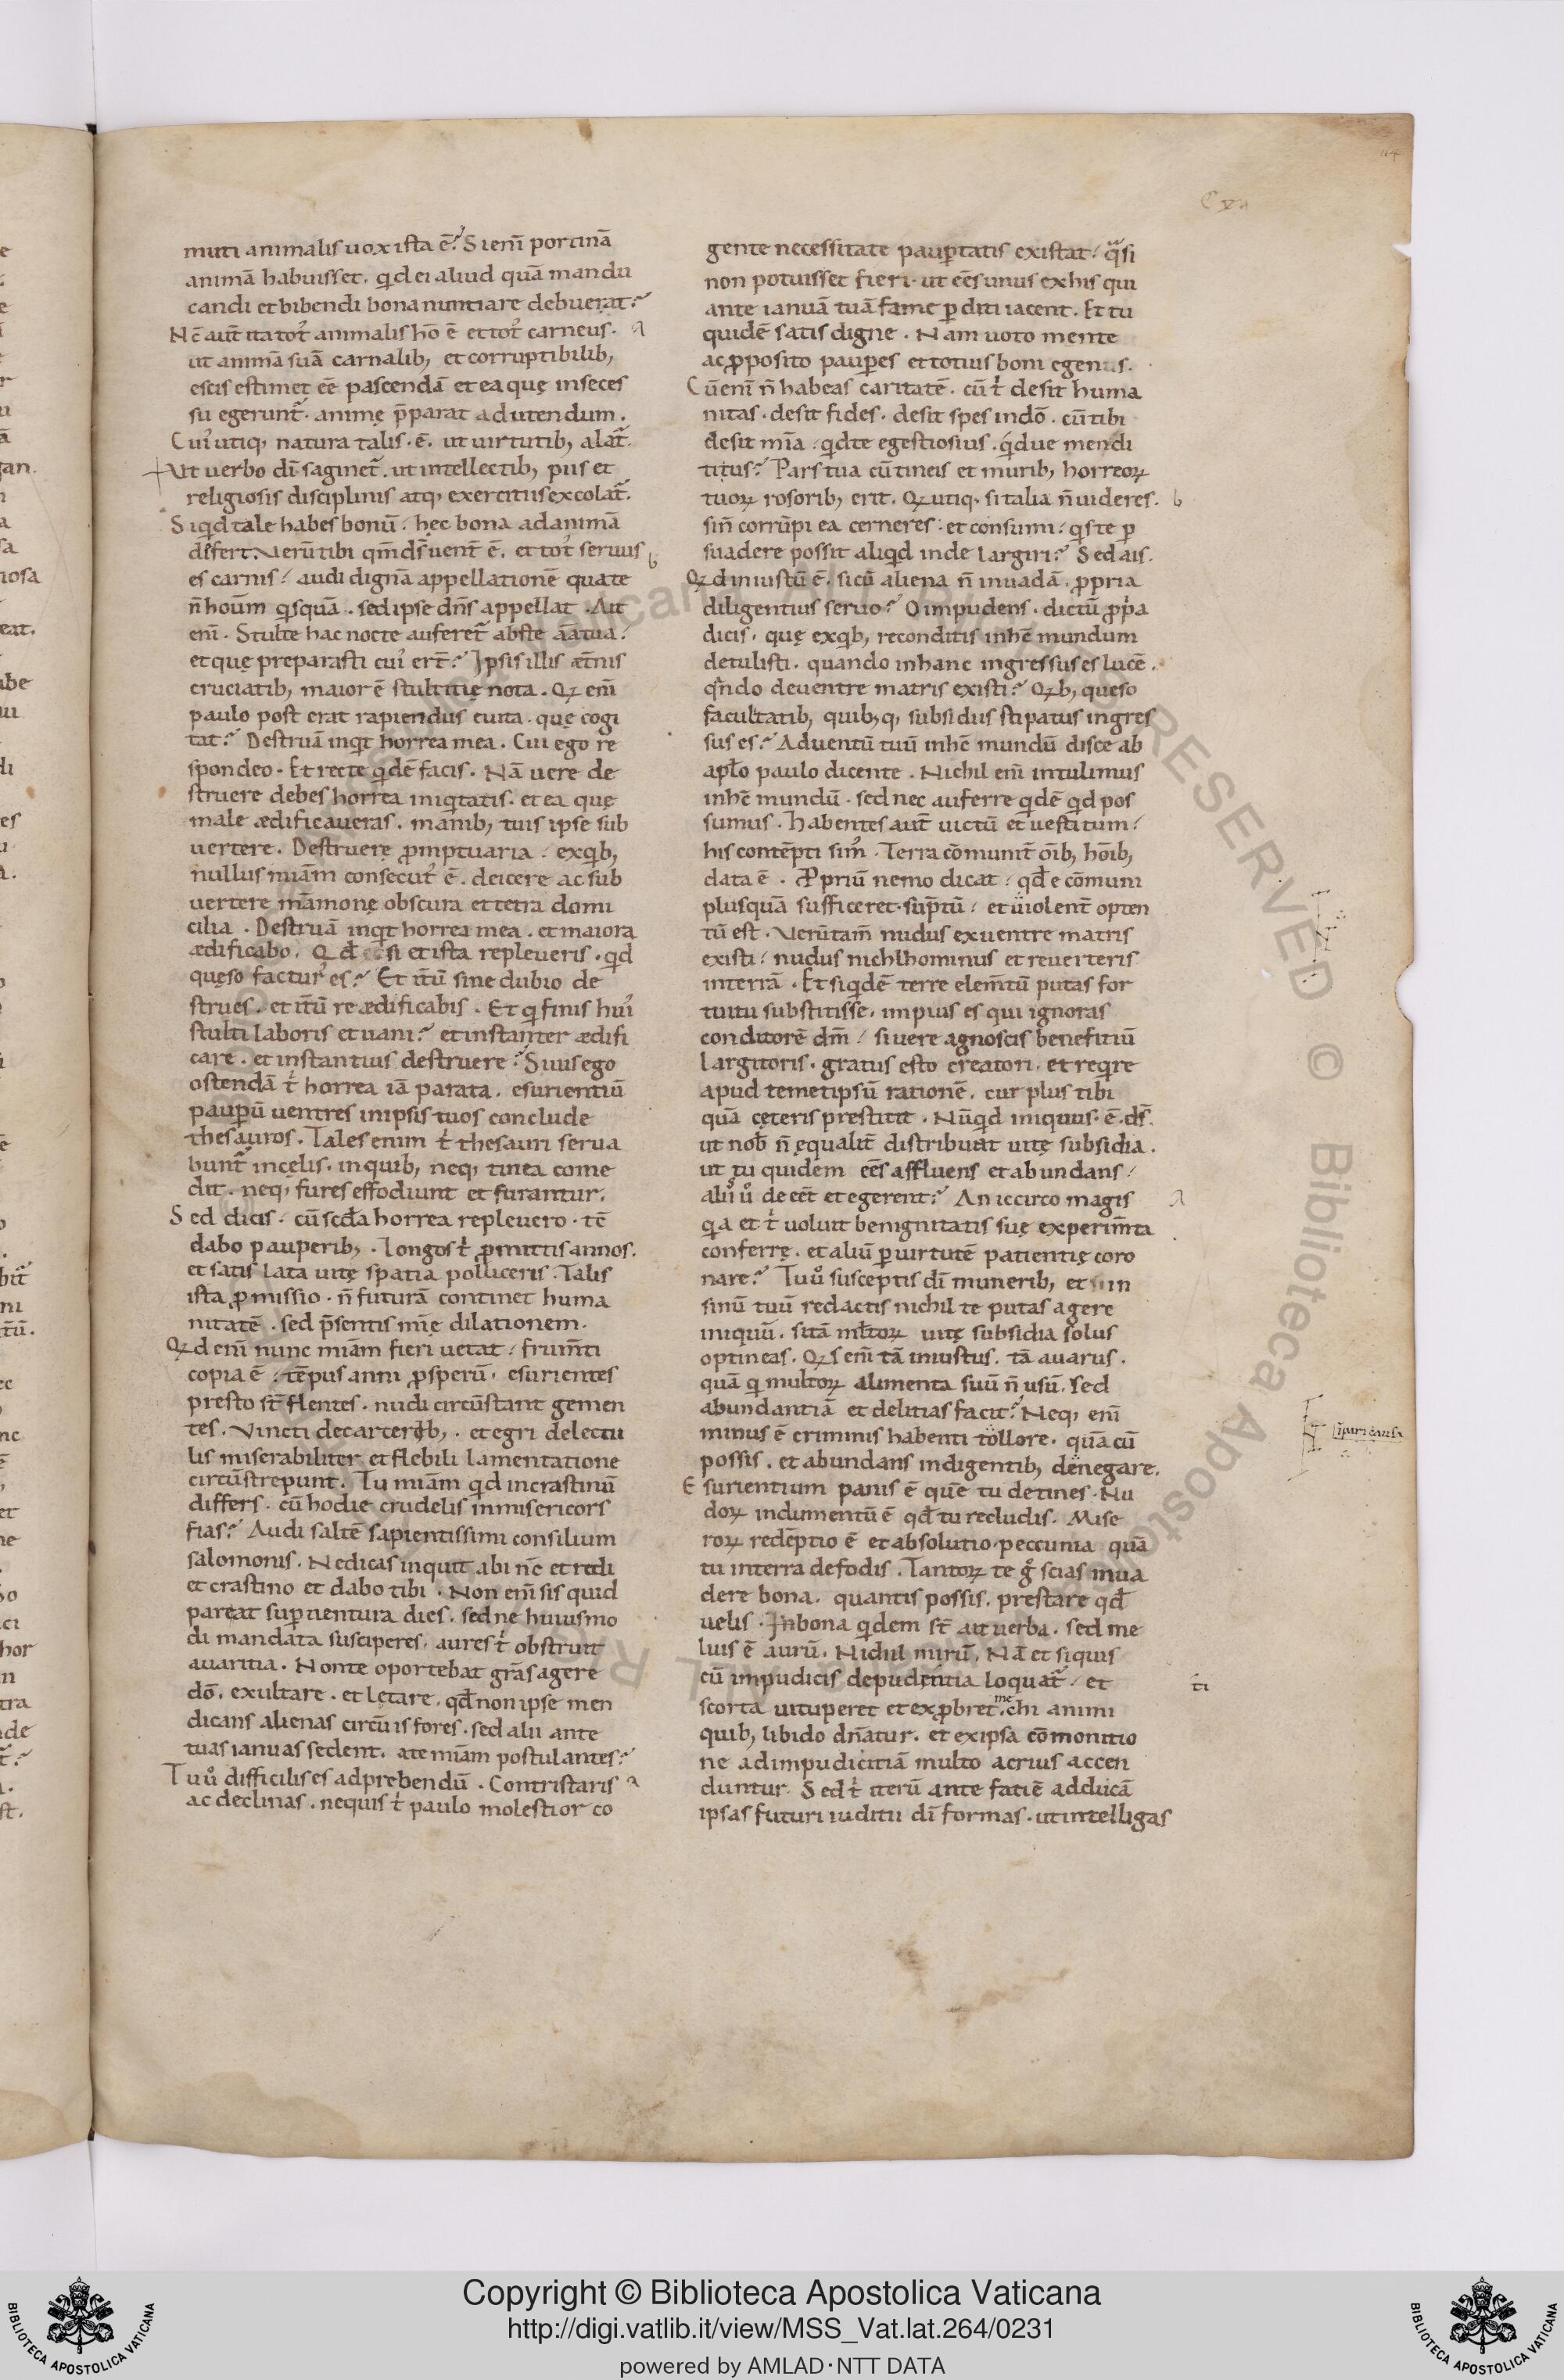 muti animalis uox ista ē? Si enī porcinā
animā habuisset. qd ei aliud quā mandu
candi et bibendi bona nuntiare debuerat?
Nē aut̄ ita tot᾽ animalis hō ē et tot᾽ carneus.
ut animā suā carnalib; et corruptibilib;
escis estimet eē pascendā et ea quę in seces
su egerunt̄. animę p̄parat ad utendum.
Cui᾽ utiq; natura talis. ē. ut uirtutib; alat̄.
Ut uerbo dī saginet̄. ut intellectib; piis et
religiosis disciplinis atq; exercitiis excolat̄.
Siqd tale habes bonū. hęc bona ad animā
defert. Verū tibi qm̄ ds̄ uent̄ ē. et tot᾽ seruus
es carnis. audi dignā appellationē qua te
n̄ houm̄ qsquā. sed ipse dn̄s appellat. Ait
enī. Stulte hac nocte auferet̄ abs te aīa tua.
et quę preparasti cui᾽ ert̄? Ipsis illis æt̄nis
cruciatib; maior ē stultitię nota. Qꝫ enī
paulo post erat rapiendus e uita. quę cogi
tat? Destruā inqt horrea mea. Cui ego re
spondeo. Et recte qdē facis. Nā uere de
struere debes horrea iniqtatis. et ea quę
male ædificaueras. manib; tuis ipse sub
uertere. Destruere ꝓmptuaria. ex qb;
nullus mīam consecut᾽ ē. deicere ac sub
uertere māmonę obscura et tetra domi
cilia. Destruā inqt horrea mea. et maiora
ædificabo. Qd si et ista repleueris. qd
quęso factur᾽ es? Et it̄ū sine dubio de
strues. et it̄ū re ædificabis. Et q finis hui᾽
stulti laboris et uani? et instanter ædifi
care. et instantius destruere? Si uis ego
ostendā t̉ horrea iā parata. esurientiū
pauꝑū uentres in ipsis tuos conclude
thesauros. Tales enim t̉ thesauri serua
bunt̄ in cęlis. in quib; neq; tinea come
dit. neq; fures effodiunt et furantur.
Sed dicis. cū scd̄a horrea repleuero. tē
dabo pauperib;. Longos t̉ ꝓmittis annos.
et satis lata uitę spatia polliceris. Talis
ista ꝓmissio. n̄ futurā continet huma
nitatē. sed p̄sentis mīę dilationem.
Qꝫd enī nunc mīam fieri uetat. frum̄ti
copia ē. tēpus anni ꝓsperū. esurientes
presto st̄ flentes. nudi circūstant gemen
tes. Vincti de carcerib;. et egri de lectu
lis miserabiliter et flebili lamentatione
circūstrepunt. Tu mīam qd in crastinū
differs. cū hodie crudelis inmisericors
fias? Audi saltē sapientissimi consilium
salomonis. Ne dicas inquit abi nc̄ et redi
et crastino et dabo tibi. Non enī sis quid
pareat suꝑuentura dies. sed ne huiusmo
di mandata susciperes. aures t̉ obstruit
auaritia. Nonte oportebat grās agere
dō. exultare. et lętare. qd̄ non ipse men
dicans alienas circūis fores. sed alii ante
tuas ianuas sedent. a te mīam postulantes?
Tu u̾ difficilis es ad prebendū. Contristaris
ac declinas. nequis t̉ paulo molestior co
gente necessitate pauꝑtatis existat. qs̄i
non potuisset fieri. ut eēs unus ex his qui
ante ianuā tuā fame ꝑditi iacent. Et tu
quidē satis digne. Nam uoto mente
ac ꝓposito pauꝑes et totius boni egenus.
Cū enī n̄ habeas caritatē. cū t̉ desit huma
nitas. desit fides. desit spes in dō. cū tibi
desit mīa. qd te egestiosius. qdue mendi
titus? Pars tua cū tineis et murib; horreoꝝ
tuoꝝ rosorib; erit. Qꝫ utiq. si talia n̄ uideres.
sin̄ corrūpi ea cerneres. et consumi. qs te ꝑ
suadere possit aliqd inde largiri? Sed ais.
Qꝫd iniustū ē. si cū aliena n̄ inuadā. ꝓpria
diligentius seruo? O impudens. dictū ꝓpa
dicis. quę ex qb; reconditis in hē mundum
detulisti. quando in hanc ingressus es lucē.
qn̄do de uentre matris existi? Qꝫb; queso
facultatib; quib;q; subsidiis stipatus ingres
sus es? Aduentū tuū in hē mundū disce ab
apl̄o paulo dicente. Nichil enī intulimus
in hē mundū. sed nec auferre qdē qd pos
sumus. Habentes aut̄ uictū et uestitum.
his contēpti sim᾽. Terra cōmunit̄ oīb; hōib;
data ē. Ꝓpriū nemo dicat. qd̄ e cōmuni
plusquā sufficeret. sūptū. et uiolent̄ opten
tū est. Verūtam̄ nudus ex uentre matris
existi. nudus nichlhominus et reuerteris
in terrā. Et siqdē terre elem̄tū putas for
tuitu substitisse. impius es qui ignoras
conditorē dm̄. si uere agnoscis benefitiū
largitoris. gratus esto creatori. et reqre
apud temetipsū rationē. cur plus tibi
quā cęteris prestitit. Nūqd iniquus. ē. ds̄.
ut nob̄ n̄ ęqualit̄ distribuat uitę subsidia.
ut tu quidem eēs affluens et abundans.
alii u̾ deeēt et egerent? An iccirco magis
qa et t̉ uoluit benignitatis suę experim̄ta
conferre. et aliū ꝑ uirtutē patientię coro
nare? Tu u̾ susceptis dī munerib; et in
sinū tuū redactis nichil te putas agere
iniquū. si tā ml̄toꝝ uitę subsidia solus
optineas. Qꝫs enī tā iniustus. tā auarus.
quā q multoꝝ alimenta suū n̄ usū. sed
abundantiā et delitias facit? Neq; enī
minus ē criminis habenti tollore. quā cū
possis. et abundans indigentib; denegare.
Esurientium panis ē quē tu detines. Nu
doꝝ indumentū ē qd̄ tu recludis. Mise
roꝝ redēptio ē et absolutio. peccunia quā
tu in terra defodis. Tantoꝝ te g̊ scias inua
dere bona. quantis possis. prestare qd̄
uelis. In bona qdem st̄ ait uerba. sed me
lius ē aurū. Nichil mirū. Nā et siquis
cū impudicis de pudentia loquat̄. et
scorta uituperet et exꝓbret. chi animi
quib; libido dn̄atur. et ex ipsa cōmonitio
ne ad impudicitiā multo acrius accen
duntur. Sed t̉ iterū ante fatiē adducā
ipsas futuri iuditii dī formas. ut intelligas
Copyright © Biblioteca Apostolica Vaticana
http://digi.vatlib.it/view/MSS_Vat.lat.264/0231
powered by AMLAD·NTT DATA